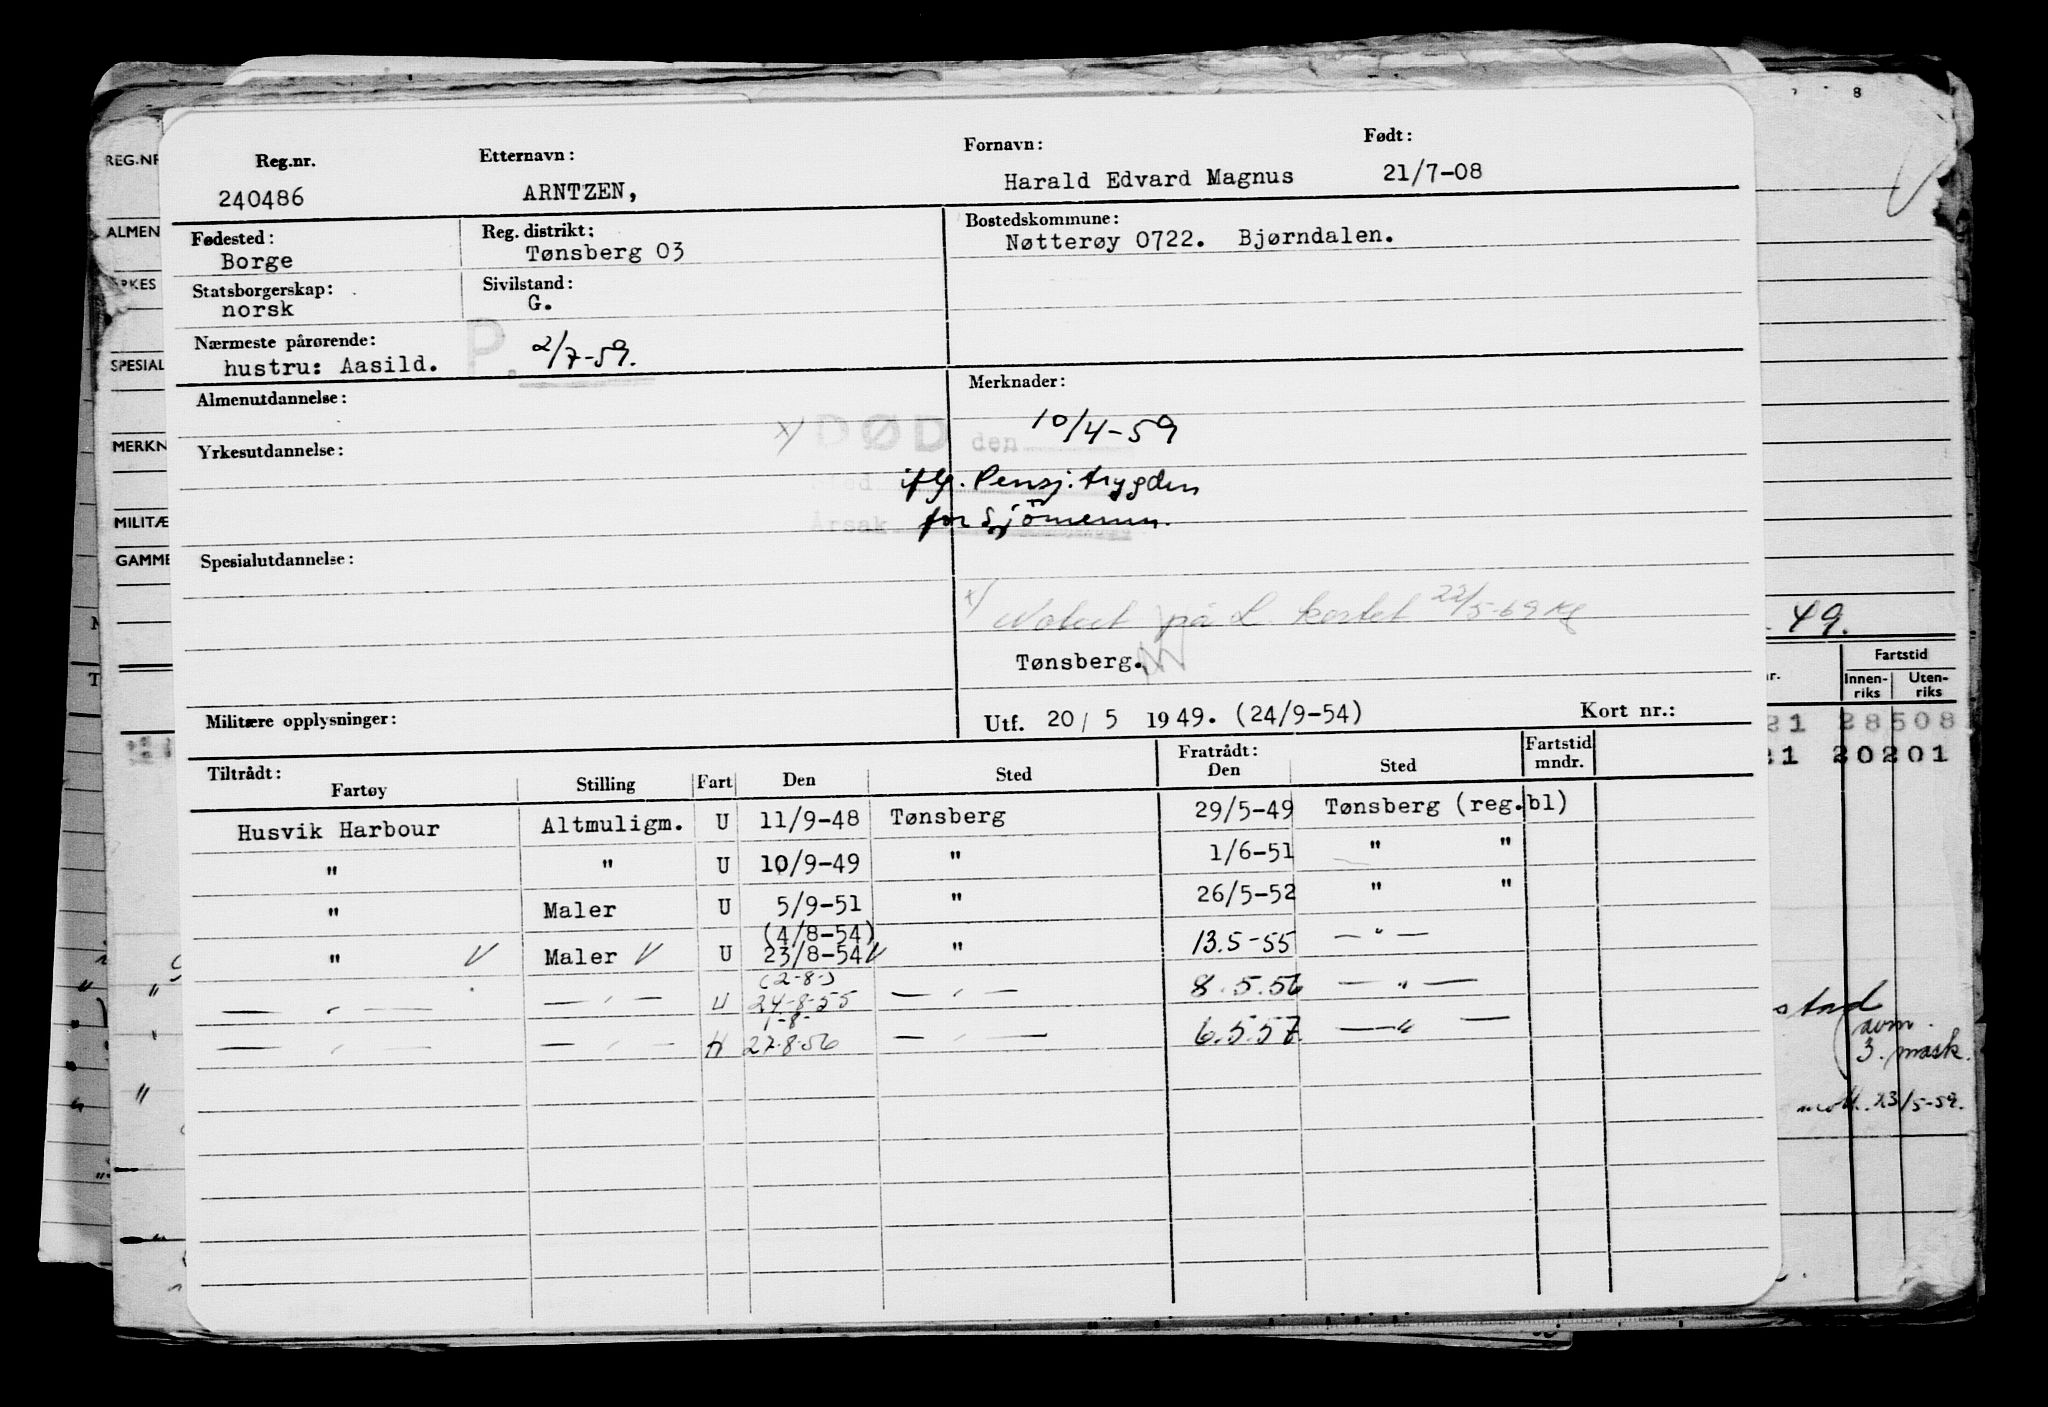 Reg.nr. Etternavn: Fornavn: Født:
240486 ARNTZEN, Harald Edvard Magnus 21/7-08
Fødested: Reg. distrikt: Bostedskommune:
Borge Tønsberg 03 Nøtterøy 0722. Bjørndalen.
Statsborgerskap: Sivilstand:
norsk G.
Nærmeste pårørende: P. 2/7-59.
hustru: Aasild.
Almenutdannelse: Merknader:
x/ DØD den 10/4-59
Yrkesutdannelse:
iflg. Pensj.trygden
Årsak for Sjömenn.
Spesialutdannelse:
x/ Notert på L. kortet 22/5-69 Kg
Tønsberg.
Militære opplysninger: Utf. 20/ 5 1949. (24/9-54) Kort nr.:
Tiltrådt: Fratrådt: Fartstid
Fartøy Stilling Fart Den Sted Den Sted mndr.
Husvik Harbour Altmuligm. U 11/9-48 Tønsberg 29/5-49 Tønsberg (reg.bl)
" " U 10/9-49 " 1/6-51 " "
" Maler U 5/9-51 " 26/5-52 " "
(4/8-54)
" V Maler V U 23/8-54 V " 13.5-55 — " —
(2-8-)
— " — — " — U 24-8-55 — " — 8.5.56 — " —
1-8-
— " — — " — H 27-8-56 — " — 6.5.57. — " —
REG.NR
ALMEN
RKES
SPESIAL
MERKN
MILITÆ
GAMME
8
49.
Fartstid
nr. Innen- Uten-
riks riks
21 28508
21 20201
stad
avm.
3. mask.
23/5-59.